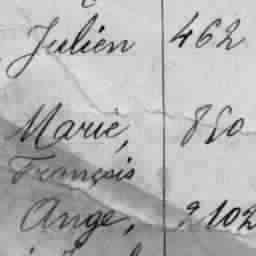 Julien 462
Marie, 850
François
Ange, 2102